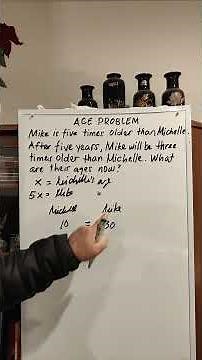 AGE PROBLEM
Mike is five times older than Michelle.
After five years, Mike will be three
times older than Michelle. What
are their ages now?
x = Michelle's age
5x = Mike "
Michelle Mike
10 = 30